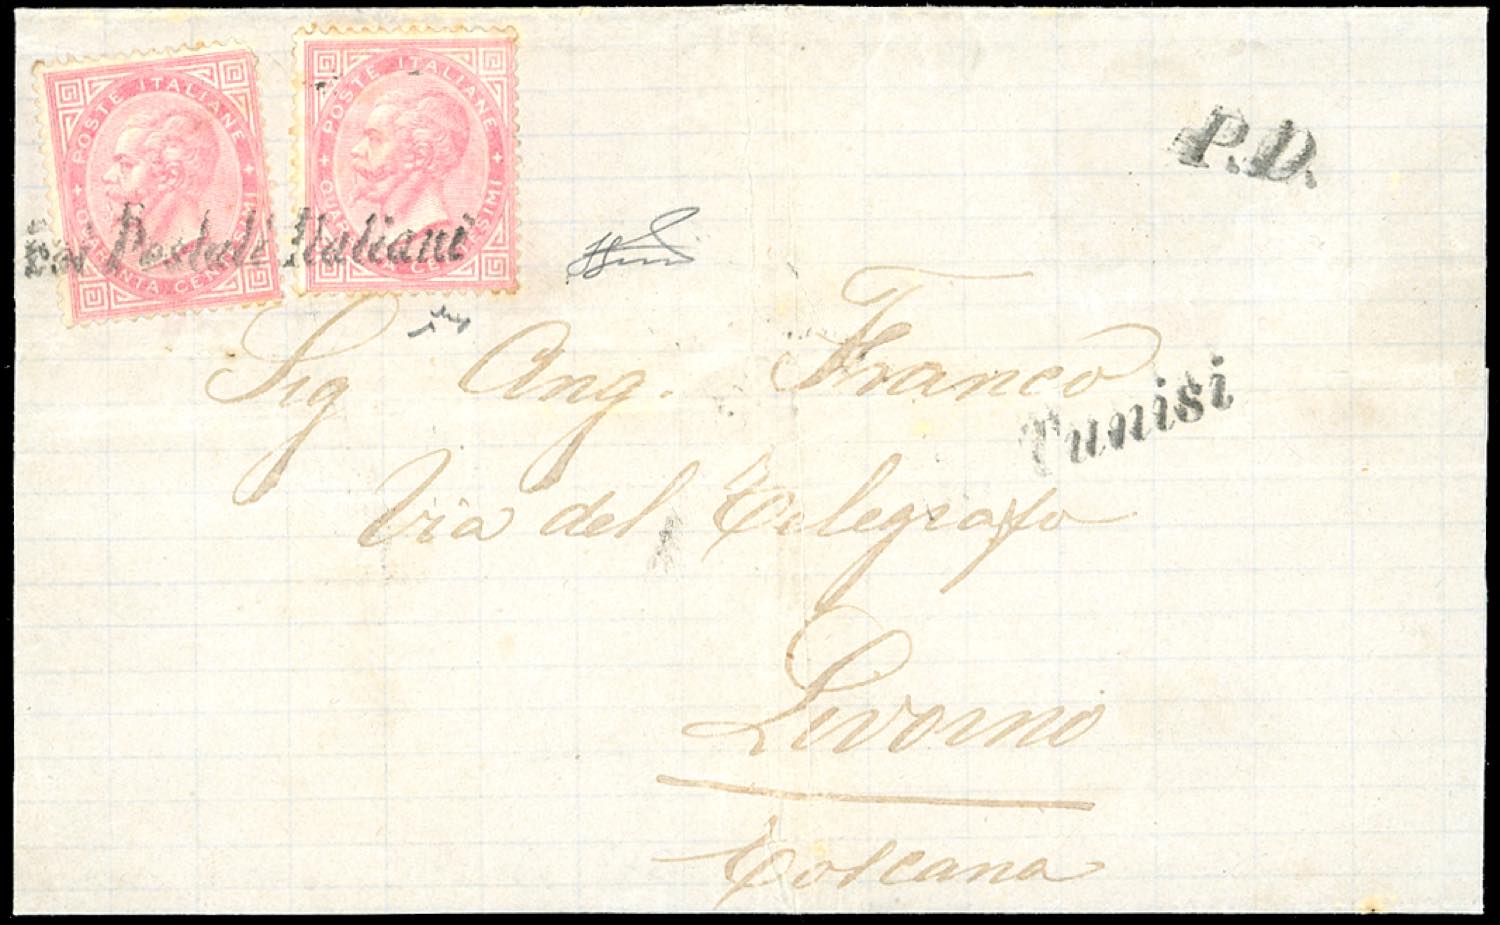 POSTE ITALIANE
QUARANTA CENTESIMI
POSTE ITALIANE
QUARANTA CENTESIMI
Postali Italiani
P.D.
Sig Ang. Franco
Tunisi
Via del Telegrafo
Livorno
Toscana